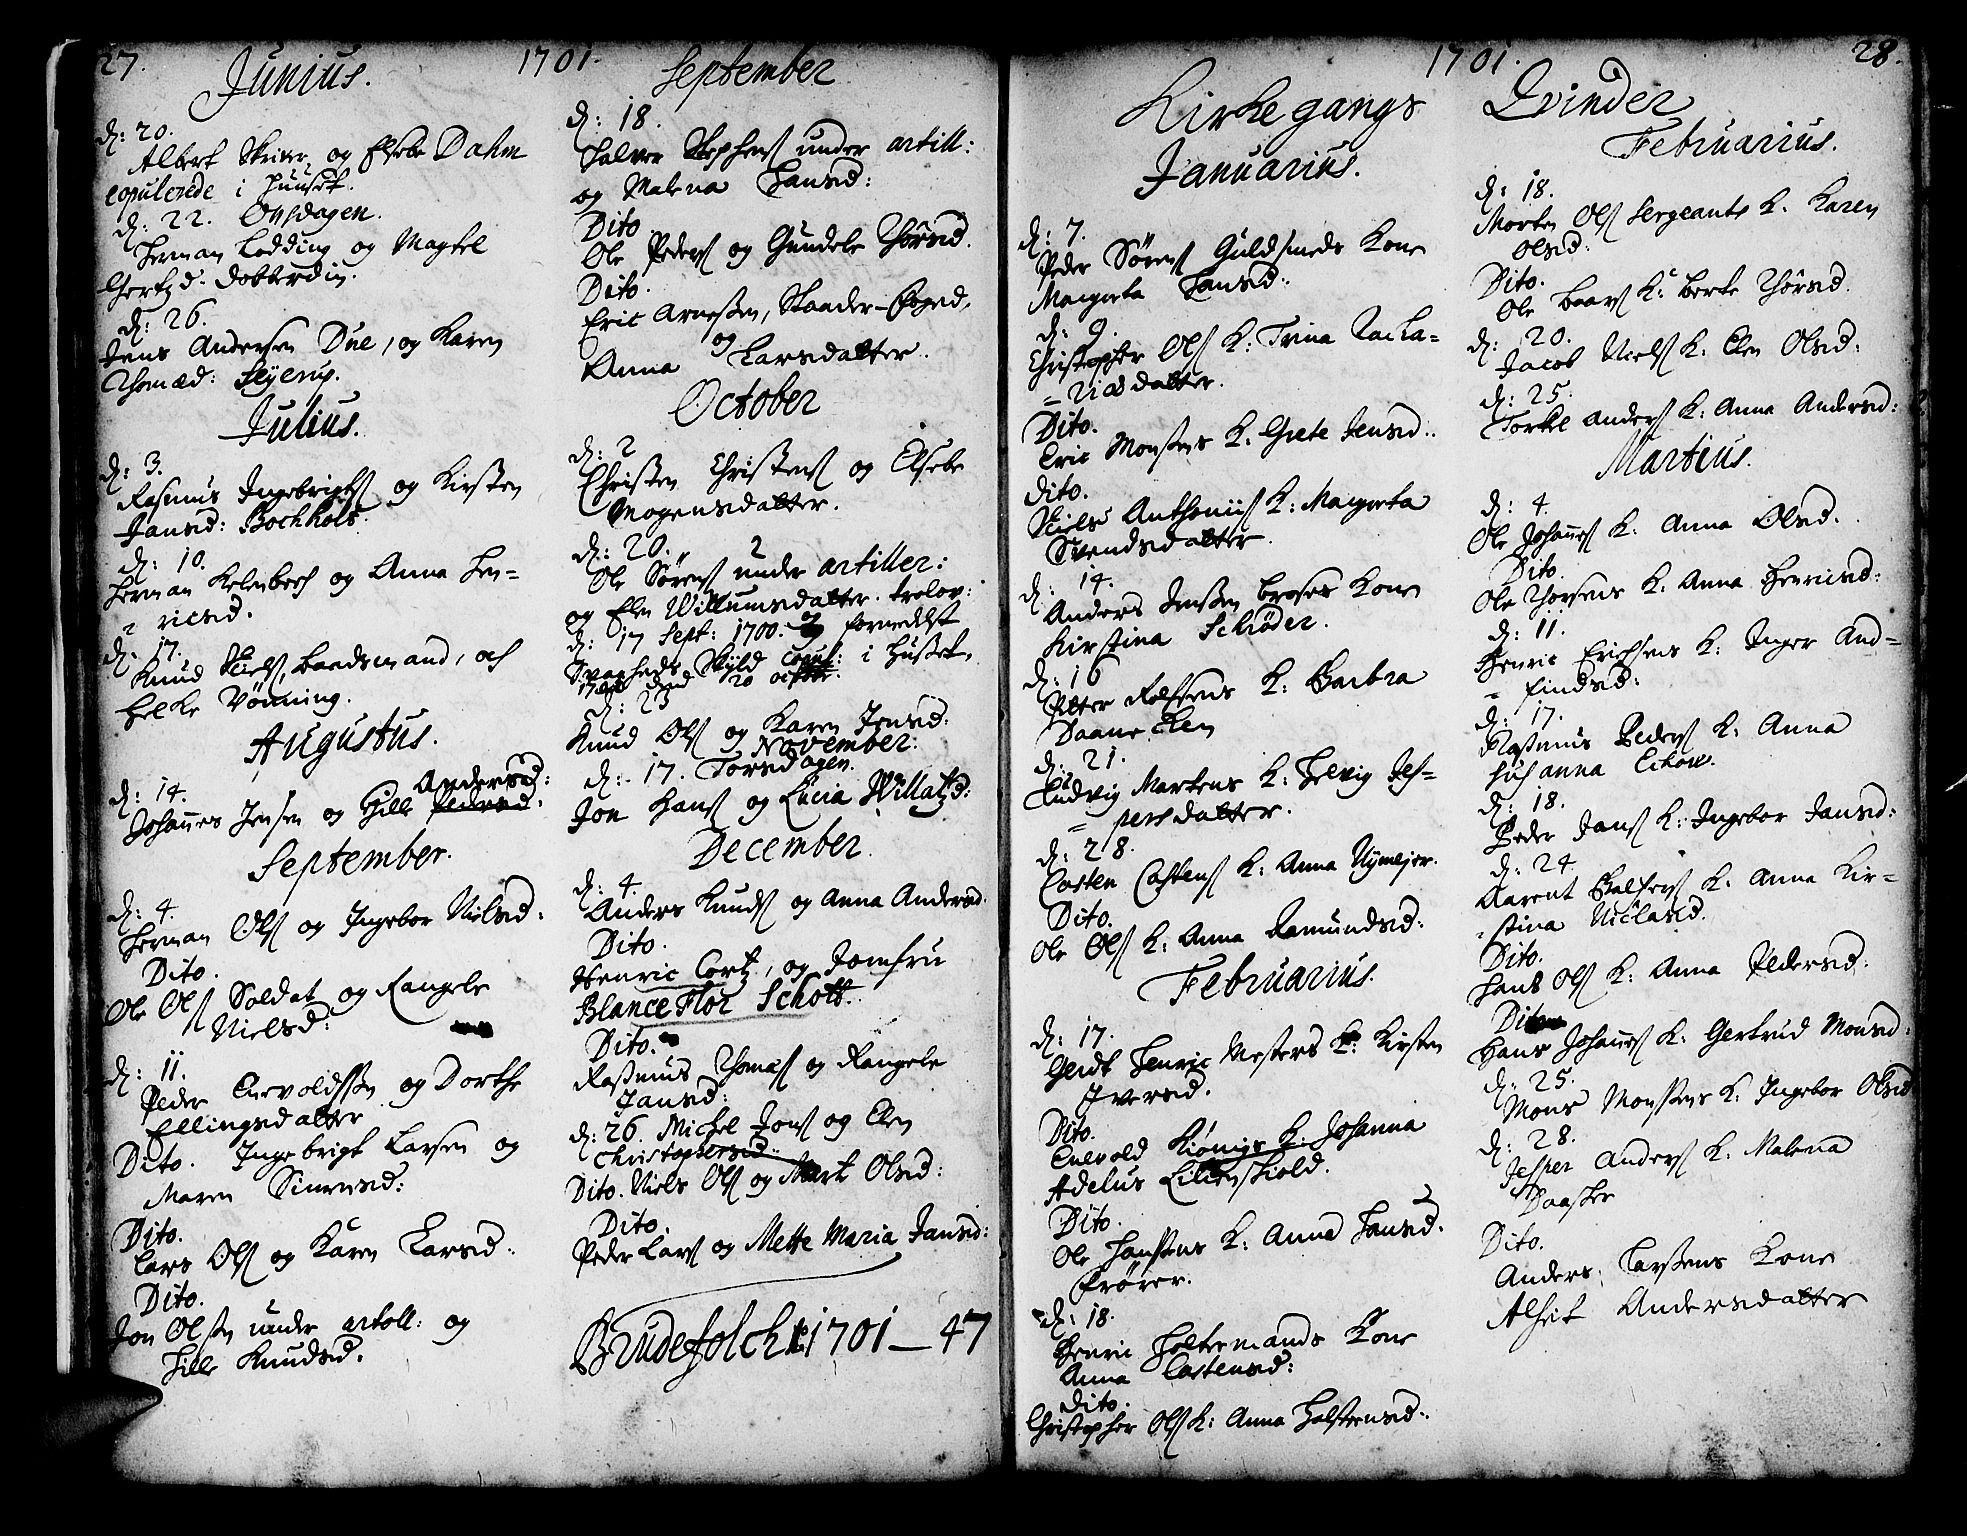 27.
1701.
Junius.
d: 20.
Albert Skriver, og Elsebe Dahm
copulerede i Huuset.
d: 22. Onsdagen.
Herman Lodding og Magtel
Gertzd. Dobberdin.
d: 26.
Jens Andersen Due, og Karen
Thomæd: Seyerup.
Julius.
d: 3.
Rasmus Ingebrigts og Kirsten
Jansd: Bochholt.
d: 10.
Herman Kelenbech og Anna Hen=
ricsd.
d. 17.
Knud Niels, Baadsmand, och
Helke Vönning.
Augustus.
d: 14.
Andersd:
Johannes Jensen og Gille Pedersd.
September.
d: 4.
Herman Ols og Ingebor Nielsd:
Dito.
Ole Ols Soldat og Rangele
Nielsd:
d: 11.
Peder Enevoldssen og Dorthe
Ellingsdatter
Dito. Ingebrigt Larsen og
Maren Simensd:
Dito.
Lars Ols og Karen Larsd:
Dito.
Jon Olsen under artoll: og
Sille Knudsd.
September
d: 18.
Halver Stephens under artill:
og Malena Hansd:
Dito
Ole Peders og Gundele Thorsd.
Dito.
Eric Arnessen, Staader-Foged,
og
Anna Larsdatter.
October
d: 2
Christen Christens og Elsebe
Mogensdatter.
d: 20.
Ole Sörens under artiller:
og Elen Willumsdatter. trolov:
d: 17 Sept: 1700. og formedelst
Svagheds Skyld copul: i Huset,
d: 23
Knud Ols og Karen Jensd:
November:
d: 17. Torsdagen.
Jon Hans og Lucia Willatzd:
December
d: 4.
Anders Knuds og Anna Andersd.
Dito.
Henric Cortz, og Jomfru
Blanceflor Schott.
Dito.
Rasmus Thomas og Rangele
Jansd:
d: 26. Michel Jons og Elen
Christophersd:
Dito. Niels Ols og Marit Olsd:
Dito.
Peder Lars og Mette Maria Jansd:
Brudefolch 1701 — 47
1701.
28.
Kirkegangs Qvinder
Januarius.
d: 7.
Peder Sörens Guldsmeds Kone
Margreta Hansd:
d: 9.
Christopher Ols K: Trina Zacha=
=riæ datter.
Dito.
Eric Monsens K: Grete Jensd:
Dito.
Niels Anthoniis K: Margreta
Svendsdatter.
d: 14.
Anders Jensen Broses Kone
Kirstina Schröder.
d: 16
Peter Rolfsens K: Barbra
Daaneelen
d: 21.
Ludvig Martens K: Helvig Jes=
=pers datter.
d: 28.
Casten Castens K: Anna Nymejer.
Dito.
Ole Ols K: Anna Ramundsd:
Februarius.
d: 17.
Gerdt Henric Mesters K: Kirsten
Iversd.
Dito.
Enevold Kiönigs K: Johanna
Adelus Lilienskiold.
Dito.
Ole Hansens K: Anna Hansd.
Frörer.
d: 18.
Henric Holtermands Kone
Anna Castensd:
Dito.
Christopher Ols K: Anna Halstensd:
Februarius.
d: 18.
Morten Ols Sergeants K. Karen
Olsd:
Dito.
Ole Baars K: Berte Thorsd.
d: 20.
Jacob Niels K: Elen Olsd:
d: 25.
Torkel Anders K: Anna Andersd:
Martius.
d: 4.
Ole Johannes K: Anna Olsd.
Dito.
Ole Thorsens K. Anna Henricsd:
d: 11.
Henric Erichsens K: Inger And=
=findsd:
d: 17.
Rasmus Peders K: Anna
Susanna Echow.
d: 18.
Peder Jans K: Ingebor Jansd:
d: 24.
Aarent Balsers K: Anna Kir=
=stina Niclasd.
Dito.
Hans Ols K: Anna Pedersd.
Dito
Hans Johannes K: Gertrud Monsd:
d: 25.
Mons Monssens K: Ingebor Olsd
d: 28.
Jesper Anders K: Malena
Daasker
Dito.
Anders Larsens Kone
Alhit Andersdatter